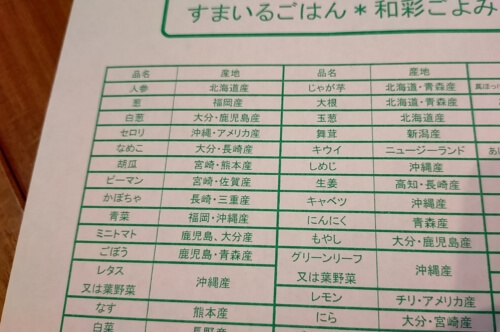 すまいるごはん*和彩ごよみ
品名 産地 品名 産地
人参 北海道産 じゃが芋 北海道・青森産
葱 福岡産 大根 北海道・青森産
白葱 大分・鹿児島産 玉葱 北海道産
セロリ 沖縄・アメリカ産 舞茸 新潟産
なめこ 大分・長崎産 キウイ ニュージーランド
胡瓜 宮崎・熊本産 しめじ 沖縄産
ピーマン 宮崎・佐賀産 生姜 高知・長崎産
かぼちゃ 長崎・三重産 キャベツ 沖縄産
青菜 福岡・沖縄産 にんにく 青森産
ミニトマト 鹿児島、大分産 もやし 大分・鹿児島産
ごぼう 鹿児島・青森産 グリーンリーフ
又は葉野菜 沖縄産
レタス
又は葉野菜 沖縄産 レモン チリ・アメリカ産
なす 熊本産 にら 大分・宮崎産
白菜 長野産